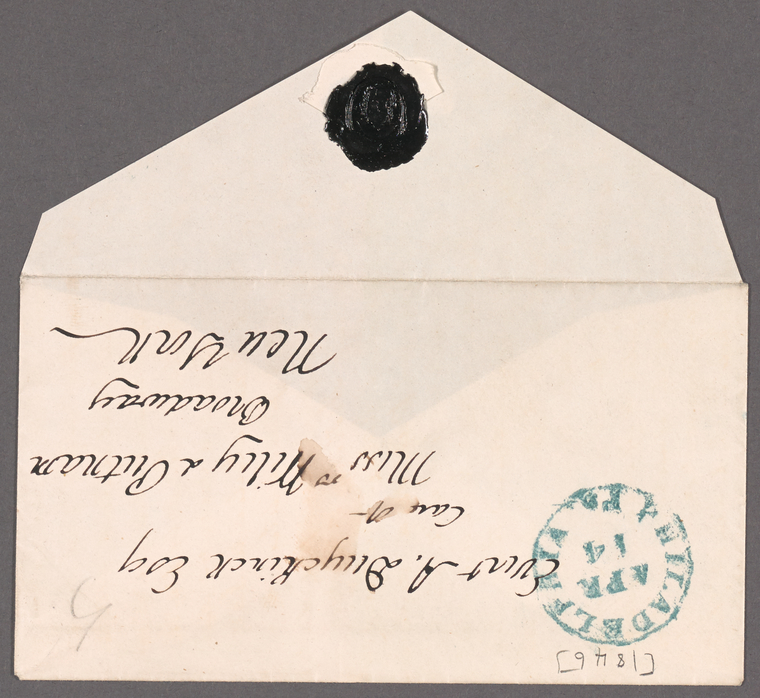 [1846]
PHILADELPHIA Pa.
APR
14
Evert A. Duyckinck Esq
Care of
Mess rs Wiley & Putnam
Broadway
New York
5